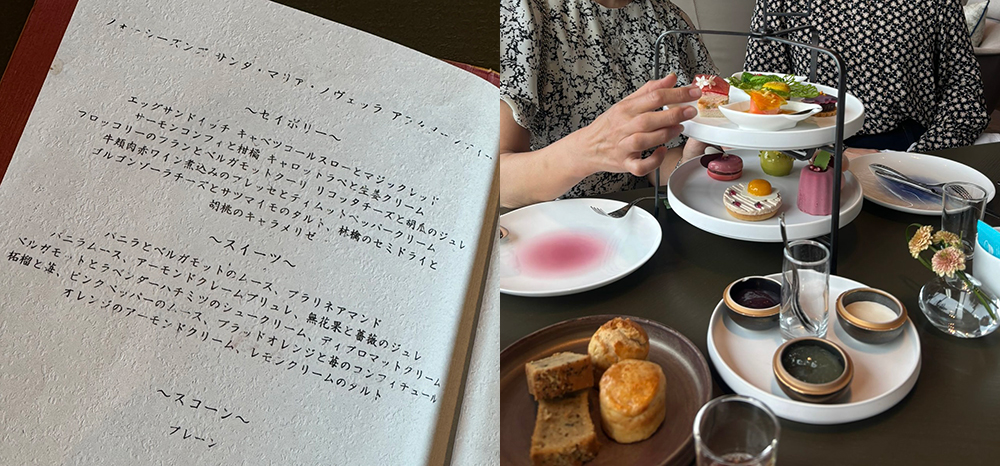 フォーシーズンズ サンタ・マリア・ノヴェッラ アフタヌーンティー
～セイボリー～
エッグサンドイッチ キャベツコールスローとマジックレッド
サーモンコンフィと柑橘 キャロットラペと生姜クリーム
ブロッコリーのフランとベルガモットクーリ リコッタチーズと胡瓜のジュレ
牛頬肉赤ワイン煮込みのブレッセとティムットペッパークリーム
ゴルゴンゾーラチーズとサツマイモのタルト、林檎のセミドライと
胡桃のキャラメリゼ
～スイーツ～
バニラとベルガモットのムース、プラリネアマンド
バニラムース、アーモンドクレームブリュレ、無花果と薔薇のジュレ
ベルガモットとラベンダーハチミツのシュークリーム、ディプロマットクリーム
柘榴と苺、ピンクペッパーのムース、ブラッドオレンジと苺のコンフィチュール
オレンジのアーモンドクリーム、レモンクリームのタルト
～スコーン～
プレーン